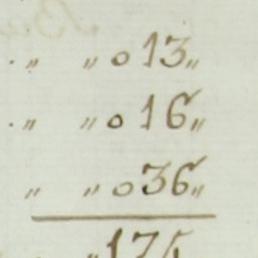 . „ „ 0 13 „
. „ „ 0 16 „
„ „ 0 36 „
„ 175